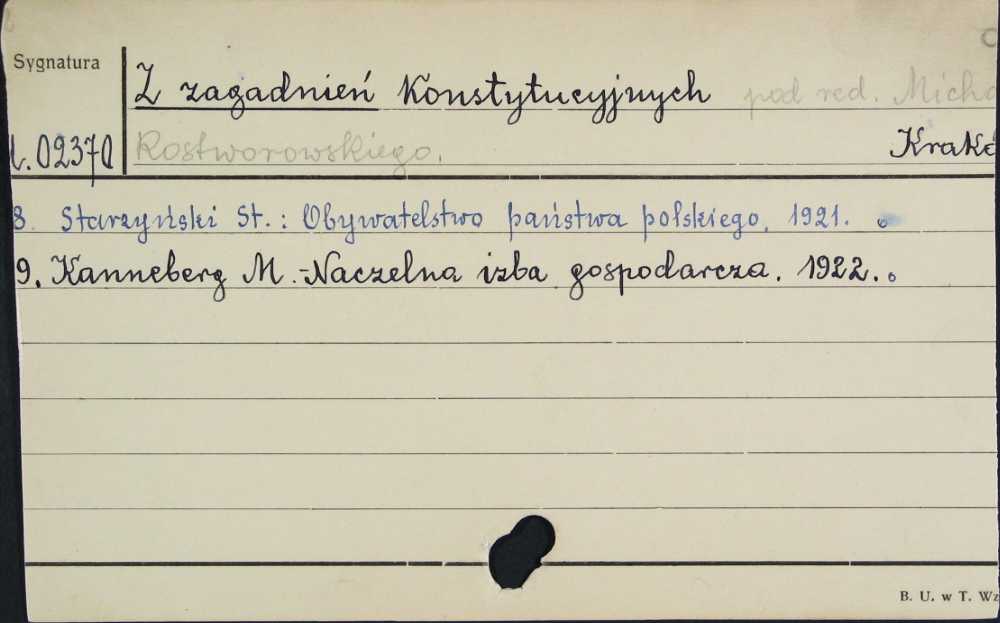 Sygnatura
Z zagadnień Konstytucyjnych pod red. Micha
02370 Rostworowskiego. Krakó
8. Starzyński St.: Obywatelstwo państwa polskiego. 1921.
9. Kanneberg M.-Naczelna izba gospodarcza. 1922.
B. U. w T. Wz